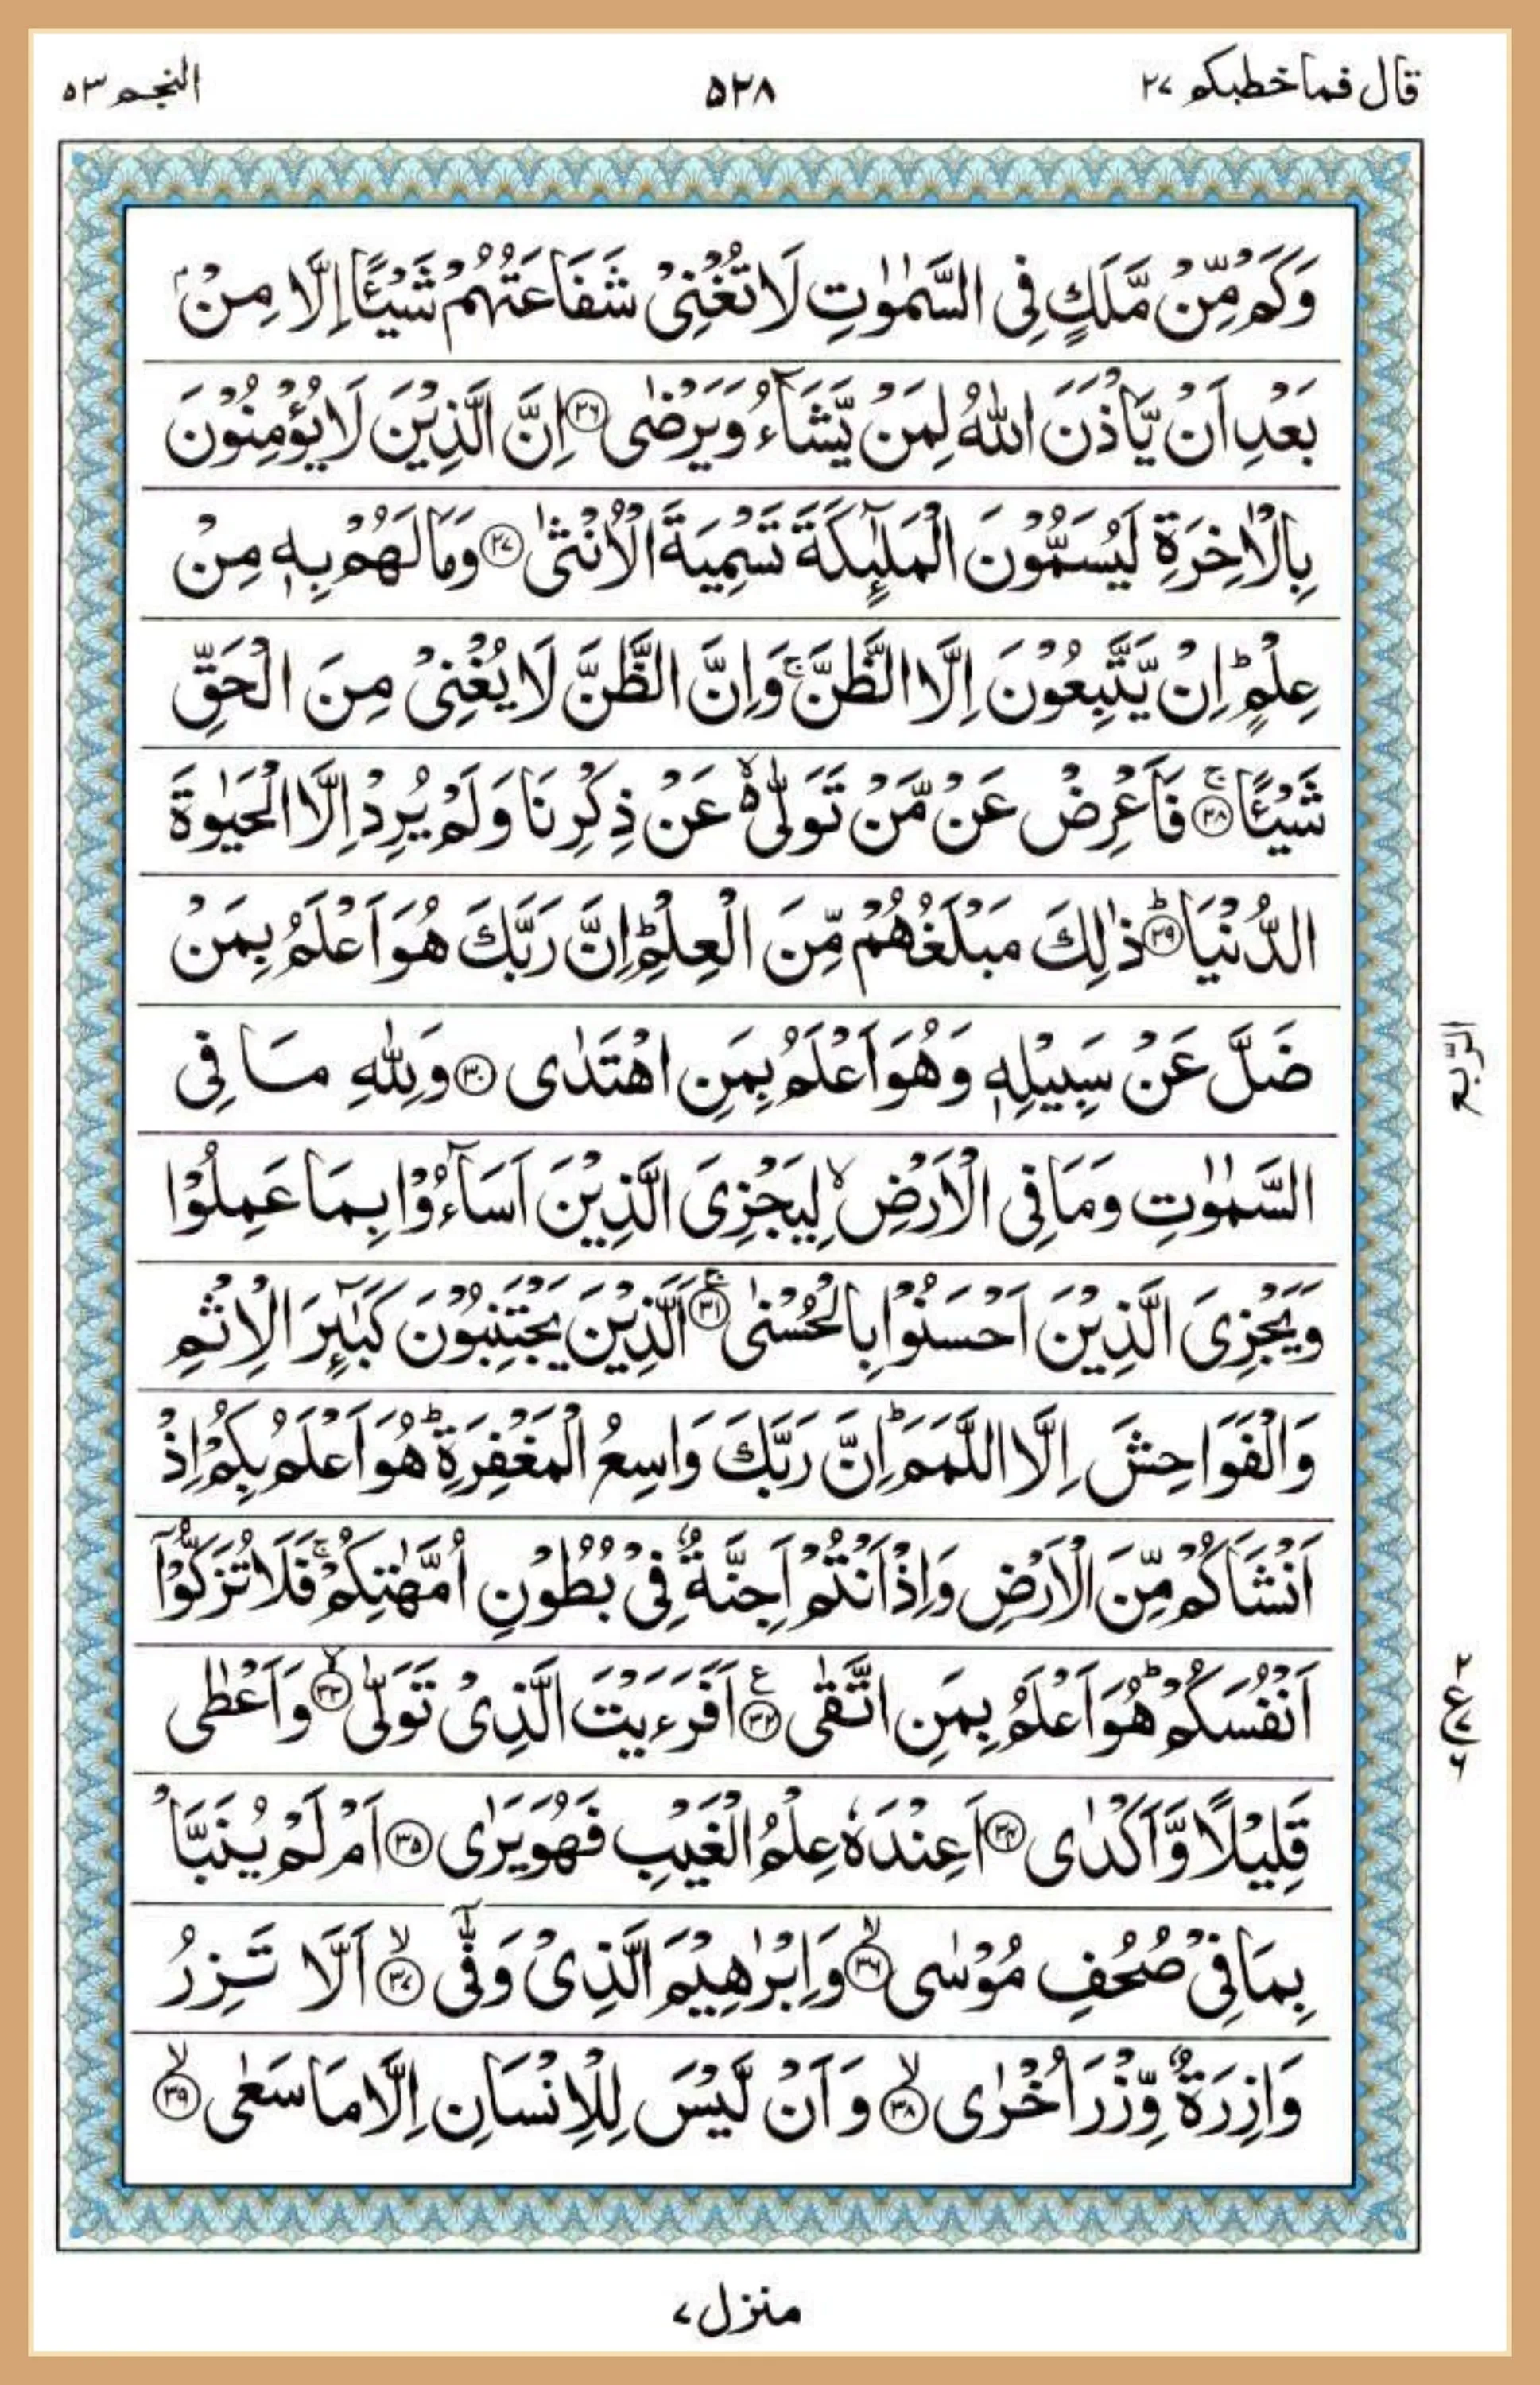 قال فما خطبكم ۲۷
۵۲۸
النجم ۵۳
وَكَمْ مِّنْ مَّلَكٍ فِى السَّمٰوٰتِ لَا تُغْنِىْ شَفَاعَتُهُمْ شَيْـًٔا اِلَّا مِنْۢ
بَعْدِ اَنْ يَّاْذَنَ اللّٰهُ لِمَنْ يَّشَآءُ وَيَرْضٰى ﴿۲۶﴾ اِنَّ الَّذِيْنَ لَا يُؤْمِنُوْنَ
بِالْاٰخِرَةِ لَيُسَمُّوْنَ الْمَلٰٓئِكَةَ تَسْمِيَةَ الْاُنْثٰى ﴿۲۷﴾ وَمَا لَهُمْ بِهٖ مِنْ
عِلْمٍ ؕ اِنْ يَّتَّبِعُوْنَ اِلَّا الظَّنَّ ۚ وَاِنَّ الظَّنَّ لَا يُغْنِىْ مِنَ الْحَقِّ
شَيْـًٔا ۚ ﴿۲۸﴾ فَاَعْرِضْ عَنْ مَّنْ تَوَلّٰى ۙ۬ عَنْ ذِكْرِنَا وَلَمْ يُرِدْ اِلَّا الْحَيٰوةَ
الدُّنْيَا ؕ ﴿۲۹﴾ ذٰلِكَ مَبْلَغُهُمْ مِّنَ الْعِلْمِ ؕ اِنَّ رَبَّكَ هُوَ اَعْلَمُ بِمَنْ
ضَلَّ عَنْ سَبِيْلِهٖ وَهُوَ اَعْلَمُ بِمَنِ اهْتَدٰى ﴿۳۰﴾ وَلِلّٰهِ مَا فِى
الرّبع
السَّمٰوٰتِ وَمَا فِى الْاَرْضِ ۙ لِيَجْزِىَ الَّذِيْنَ اَسَآءُوْا بِمَا عَمِلُوْا
وَيَجْزِىَ الَّذِيْنَ اَحْسَنُوْا بِالْحُسْنٰى ۚ ﴿۳۱﴾ اَلَّذِيْنَ يَجْتَنِبُوْنَ كَبٰٓئِرَ الْاِثْمِ
وَالْفَوَاحِشَ اِلَّا اللَّمَمَ ؕ اِنَّ رَبَّكَ وَاسِعُ الْمَغْفِرَةِ ؕ هُوَ اَعْلَمُ بِكُمْ اِذْ
اَنْشَاَكُمْ مِّنَ الْاَرْضِ وَاِذْ اَنْتُمْ اَجِنَّةٌ فِىْ بُطُوْنِ اُمَّهٰتِكُمْ ۚ فَلَا تُزَكُّوْٓا
اَنْفُسَكُمْ ؕ هُوَ اَعْلَمُ بِمَنِ اتَّقٰى ﴿۳۲﴾ ع اَفَرَءَيْتَ الَّذِىْ تَوَلّٰى ۙ ﴿۳۳﴾ وَاَعْطٰى
۲ ع ۷ ۶
قَلِيْلًا وَّاَكْدٰى ﴿۳۴﴾ اَعِنْدَهٗ عِلْمُ الْغَيْبِ فَهُوَ يَرٰى ﴿۳۵﴾ اَمْ لَمْ يُنَبَّاْ
بِمَا فِىْ صُحُفِ مُوْسٰى ۙ ﴿۳۶﴾ وَاِبْرٰهِيْمَ الَّذِىْ وَفّٰىٓ ۙ ﴿۳۷﴾ اَلَّا تَزِرُ
وَازِرَةٌ وِّزْرَ اُخْرٰى ۙ ﴿۳۸﴾ وَاَنْ لَّيْسَ لِلْاِنْسَانِ اِلَّا مَا سَعٰى ۙ ﴿۳۹﴾
منزل ۷